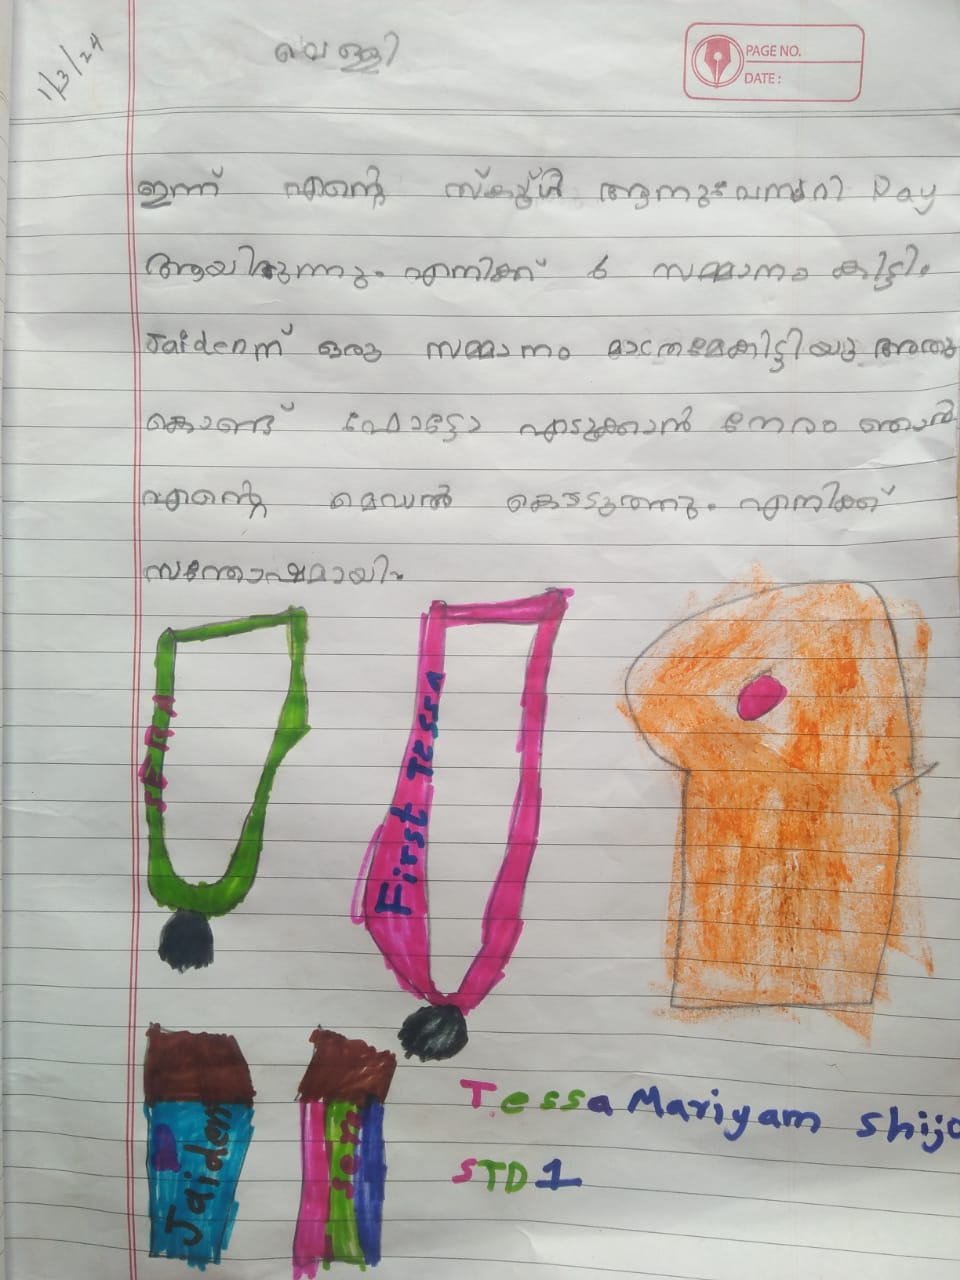 1/3/24
വെള്ളി
PAGE NO.
DATE :
ഇന്ന് എന്റെ സ്കൂളിൽ ആനുവേന്വറി Day
ആയിരുന്നു. എനിക്ക് 6 സമ്മാനം കിട്ടി.
Jaidenന് ഒരു സമ്മാനം മാത്രമേകിട്ടിയു അതു
കൊണ്ട് ഫോട്ടോ എടുക്കാൻ നേരം ഞാൻ
എന്റെ മെഡൽ കൊടുത്തു. എനിക്ക്
സന്തോഷമായി.
SERA
First TESSA
Jaiden
Tessa Mariyam Shijo
STD 1